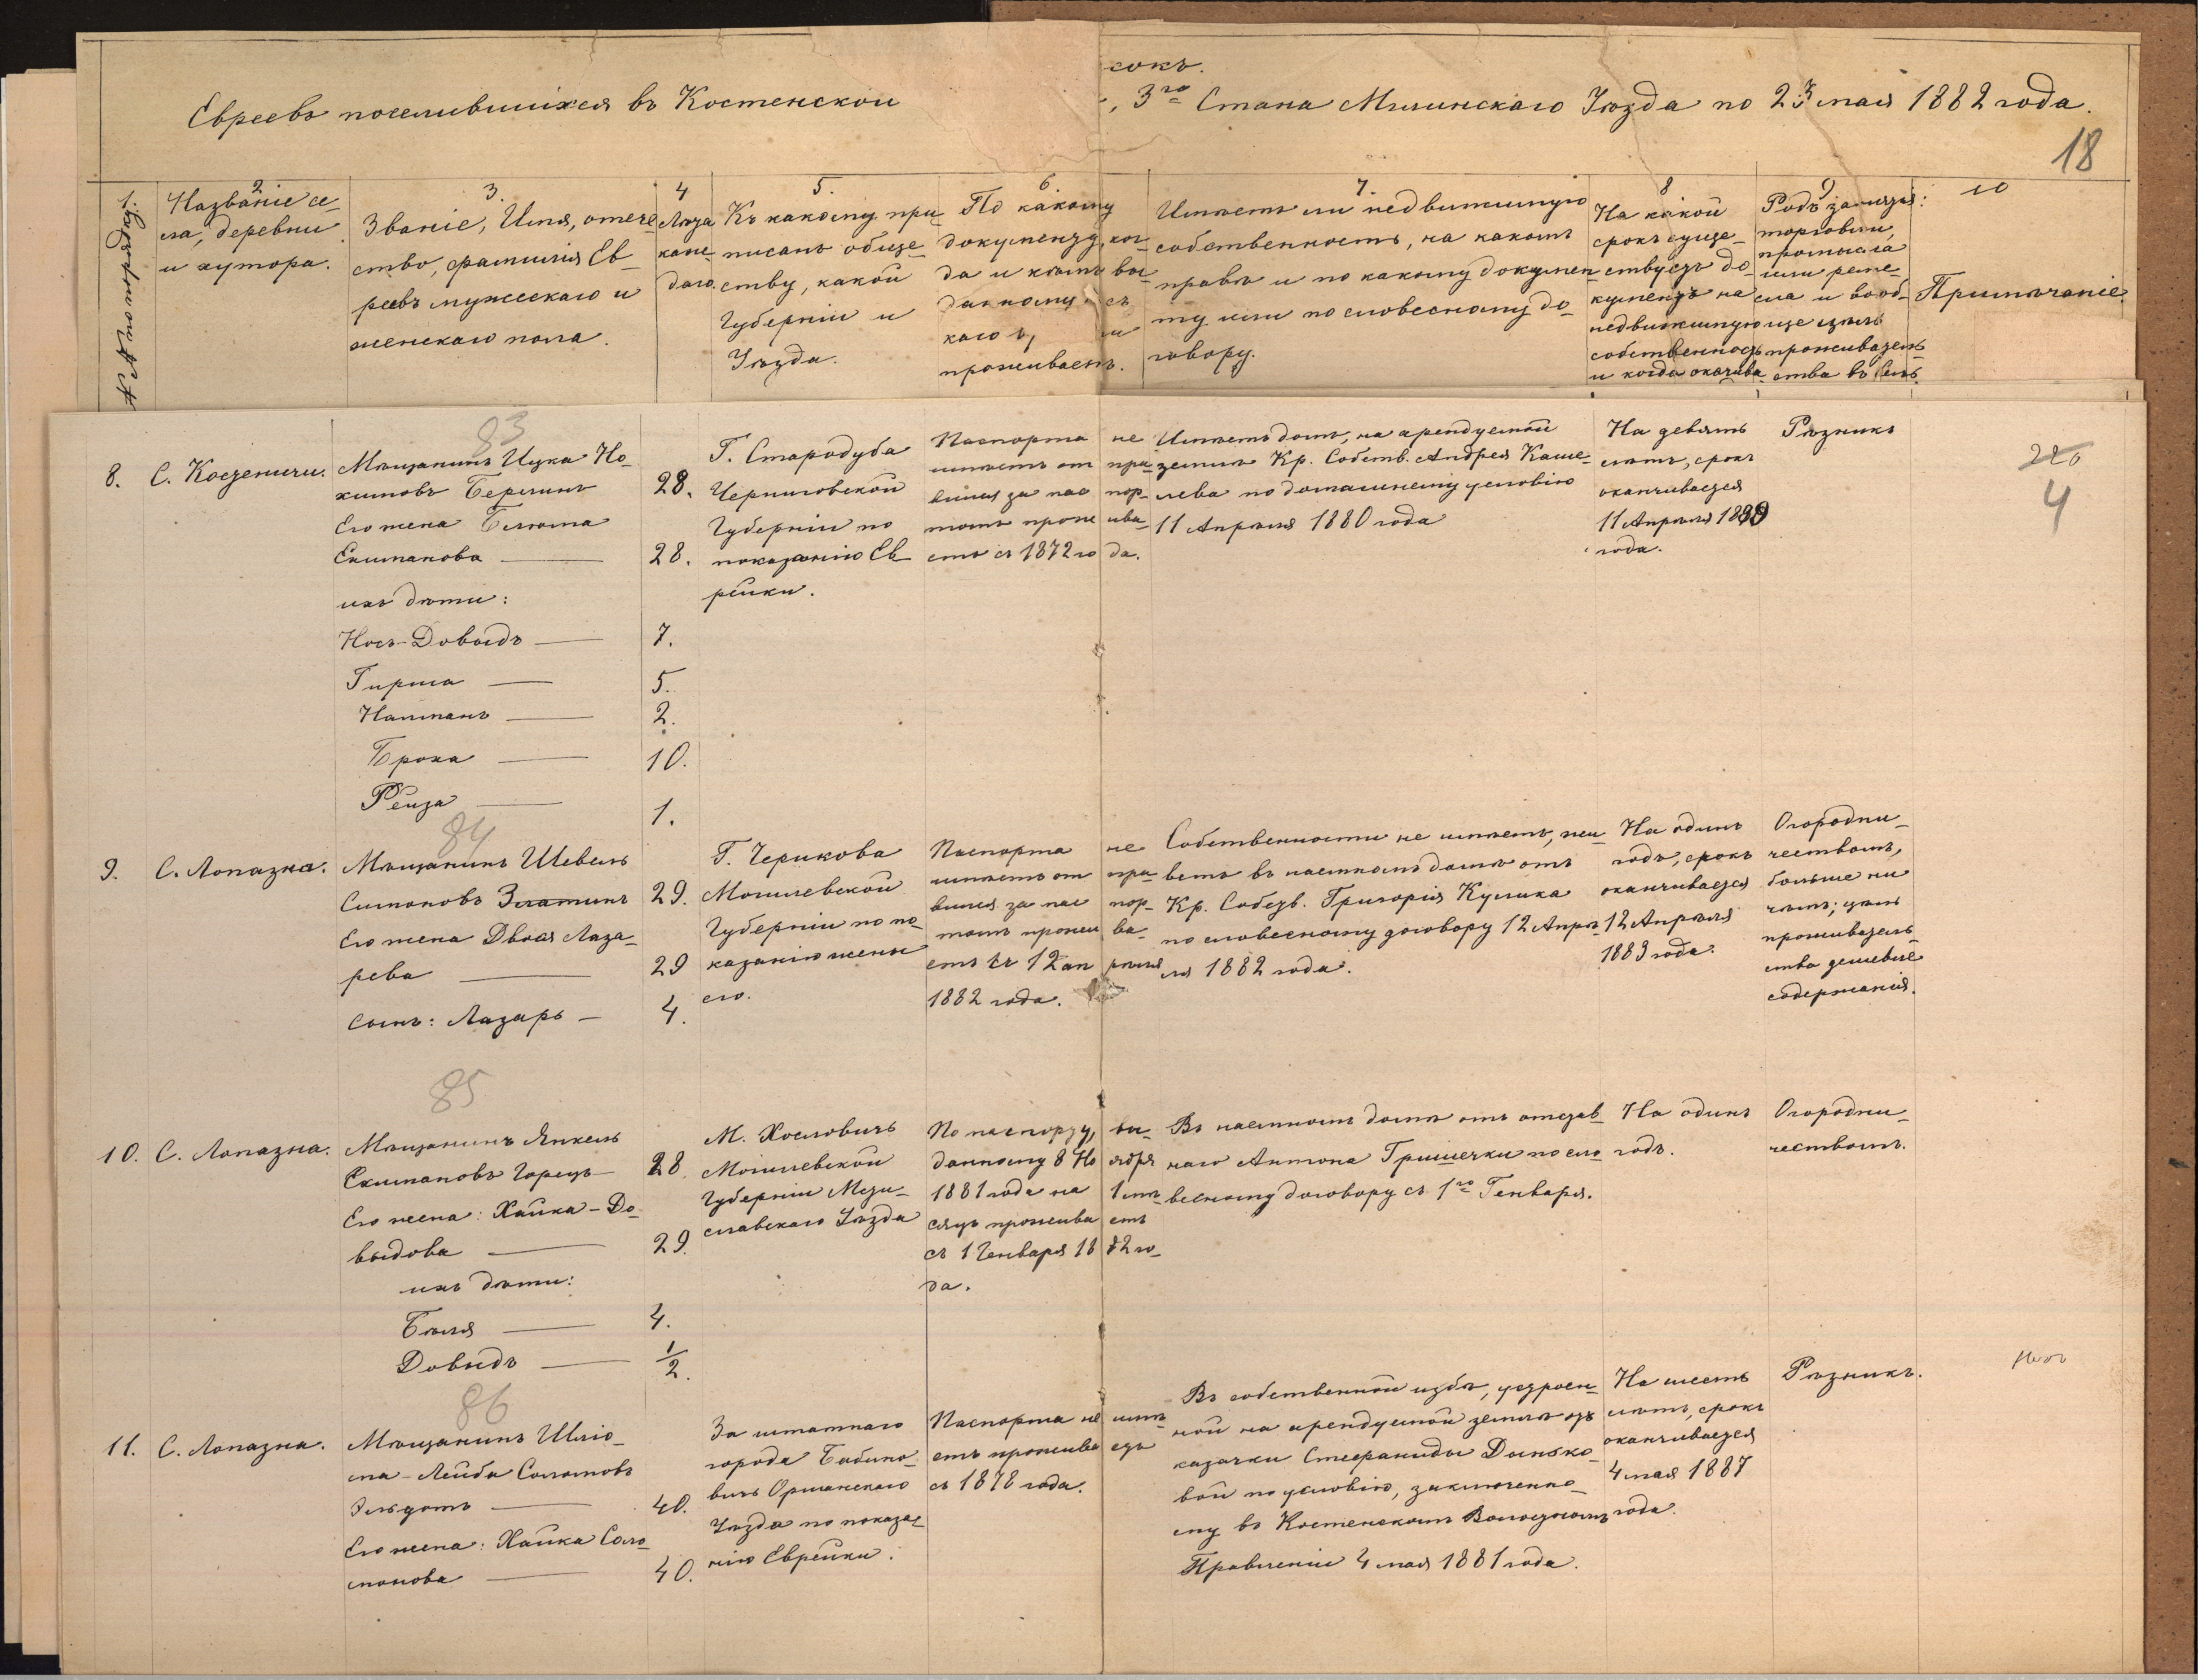 сокъ.
Евреевъ поселившихся въ Костенской 3го Стана Мглинскаго Уѣзда по 23 мая 1882 года.
18
1. № по порядку.
2
Названіе се-
ла, деревни
и хутора.
3.
Званіе, Имя, отече-
ство, фамилія Ев-
реевъ мужескаго и
женскаго пола.
4
Лѣта
каж-
даго.
5.
Къ какому при-
писанъ обще-
ству, какой
Губерніи и
Уѣзда.
6
По какому
документу, ког-
да и кѣмъ вы-
данному съ
каго
проживаетъ.
7.
Имѣетъ ли недвижимую
собственность, на какомъ
правѣ и по какому докумен-
ту или по словесному до-
говору.
8
На какой
срокъ суще-
ствуетъ до-
кументъ на
недвижимую
собственность
и когда окончива
9
Родъ занятія:
торговли,
промысла
или реме-
сла и вооб-
ще цѣль
проживатель-
ства въ селѣ.
10
Примѣчаніе.
83
8.
С. Костеничи.
Мѣщанинъ Ицка Но-
химовъ Берлинъ
28.
Его жена Блюма
Екиманова
28.
ихъ дѣти:
Носъ-Довыдъ
7.
Гирша
5.
Натанъ
2.
Броха
10.
Рейза
1.
Г. Стародуба
Черниговской
Губерніи по
показанію Ев-
рейки.
Паспорта не
имѣетъ отпра-
вился за паспор-
томъ прожива-
етъ съ 1872 года.
Имѣетъ домъ, на арендуемой
землѣ Кр. Собств. Андрея Каше-
лева по домашнему условію
11 Апрѣля 1880 года
На девять
лѣтъ, срокъ
оканчивается
11 Апрѣля 1889
года.
Рѣзникъ
220
4
84
9.
С. Лопазна.
Мѣщанинъ Шевель
Симоновъ Златинъ
29.
Его жена Двося Лаза-
рева
29
Сынъ: Лазарь
4.
Г. Черикова
Могилевской
Губерніи по по-
казанію жены
его.
Паспорта не
имѣетъ отпра-
вился за паспор-
томъ прожива-
етъ съ 12 апрѣля
1882 года.
Собственности не имѣетъ, жи-
ветъ въ наемномъ домѣ отъ
Кр. Собств. Григорія Кулика
по словесному договору 12 Апрѣ-
ля 1882 года.
На одинъ
годъ, срокъ
оканчивается
12 Апрѣля
1883 года.
Огородни-
чествомъ,
больше ни
чѣмъ; цѣль
проживатель-
ства дешевле
содержанія.
85
10.
С. Лопазна.
Мѣщанинъ Янкель
Екимановъ Горецъ
28
Его жена: Хайка-До-
выдова
29.
ихъ дѣти:
Бѣля
4.
Довыдъ
1/2.
М. Хословичъ
Могилевской
Губерніи Мсти-
славскаго Уѣзда
По паспорту, вы-
данному 8 Ноября
1881 года на 1 мѣ-
сяцъ проживаетъ
съ 1 Генваря 1882 го-
да.
Въ наемномъ домѣ отъ отстав-
наго Антона Гришечки по сло-
весному договору съ 1го Генваря.
На одинъ
годъ.
Огородни-
чествомъ.
86
11.
С. Лопазна.
Мѣщанинъ Шлio-
ма-Лейба Соломовъ
40.
Его жена: Хайка Соло-
монова
40.
Заштатнаго
города Бабино-
вичъ Оршанскаго
Уѣзда по показа-
нію Еврейки.
Паспорта не имѣ-
етъ проживаетъ
съ 1878 года.
Въ собственной избѣ, устроен-
ной на арендуемой землѣ отъ
казачки Стефаниды Дынько-
вой по условію, заключенно-
му въ Костенскомъ Волостномъ
Правленіи 4 мая 1881 года.
На шесть
лѣтъ, срокъ
оканчивается
4 мая 1887
года.
Рѣзникъ.